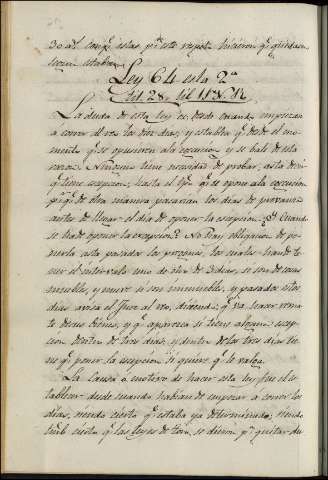 30 as. tenga estas, pr. este respeto hicieron q. quedasen
como estaban.
Ley 64 es la 2ª
tit 28. lib 11 N. R.
La duda de esta ley es desde cuando empiezan
á correr al reo los diez dias, y establece q. desde el mo-
mento q. se opusieren a la execucion y se hale de esta
razon. Ninguno tiene necesidad de probar, asta decir
q. tiene excepcion, hasta el tpo. q. se opone a la execucion
pr. q. de otra manera pasarian los dias de provanza
antes de llegar el dia de oponer la excepcion. ¿Y Cuando
se ha de oponer la excepcion? No tiene obligacion de po-
nerla asta pasados los pregones, los cuales han de te-
ner el intervalo uno de otro de 3 dias, si son de cosas
muebles, y nueve si son inmuebles, y pasados estos
dias avisa el Juez al reo, diciendo q. va hacer rema-
te de sus bienes, y q. aparezca si tiene alguna excep-
cion dentro de tres dias, y dentro de los tres dias tie-
ne q. poner la excepcion si quiere q. le valga.
La causa ó motivo de hacer esta ley fue el es-
tablecer desde cuando habian de empezar a correr los
dias, siendo cierto q. estaba ya determinado; siendo
tamb. cierto q. las leyes de toro, se dieron pr. quitar du-